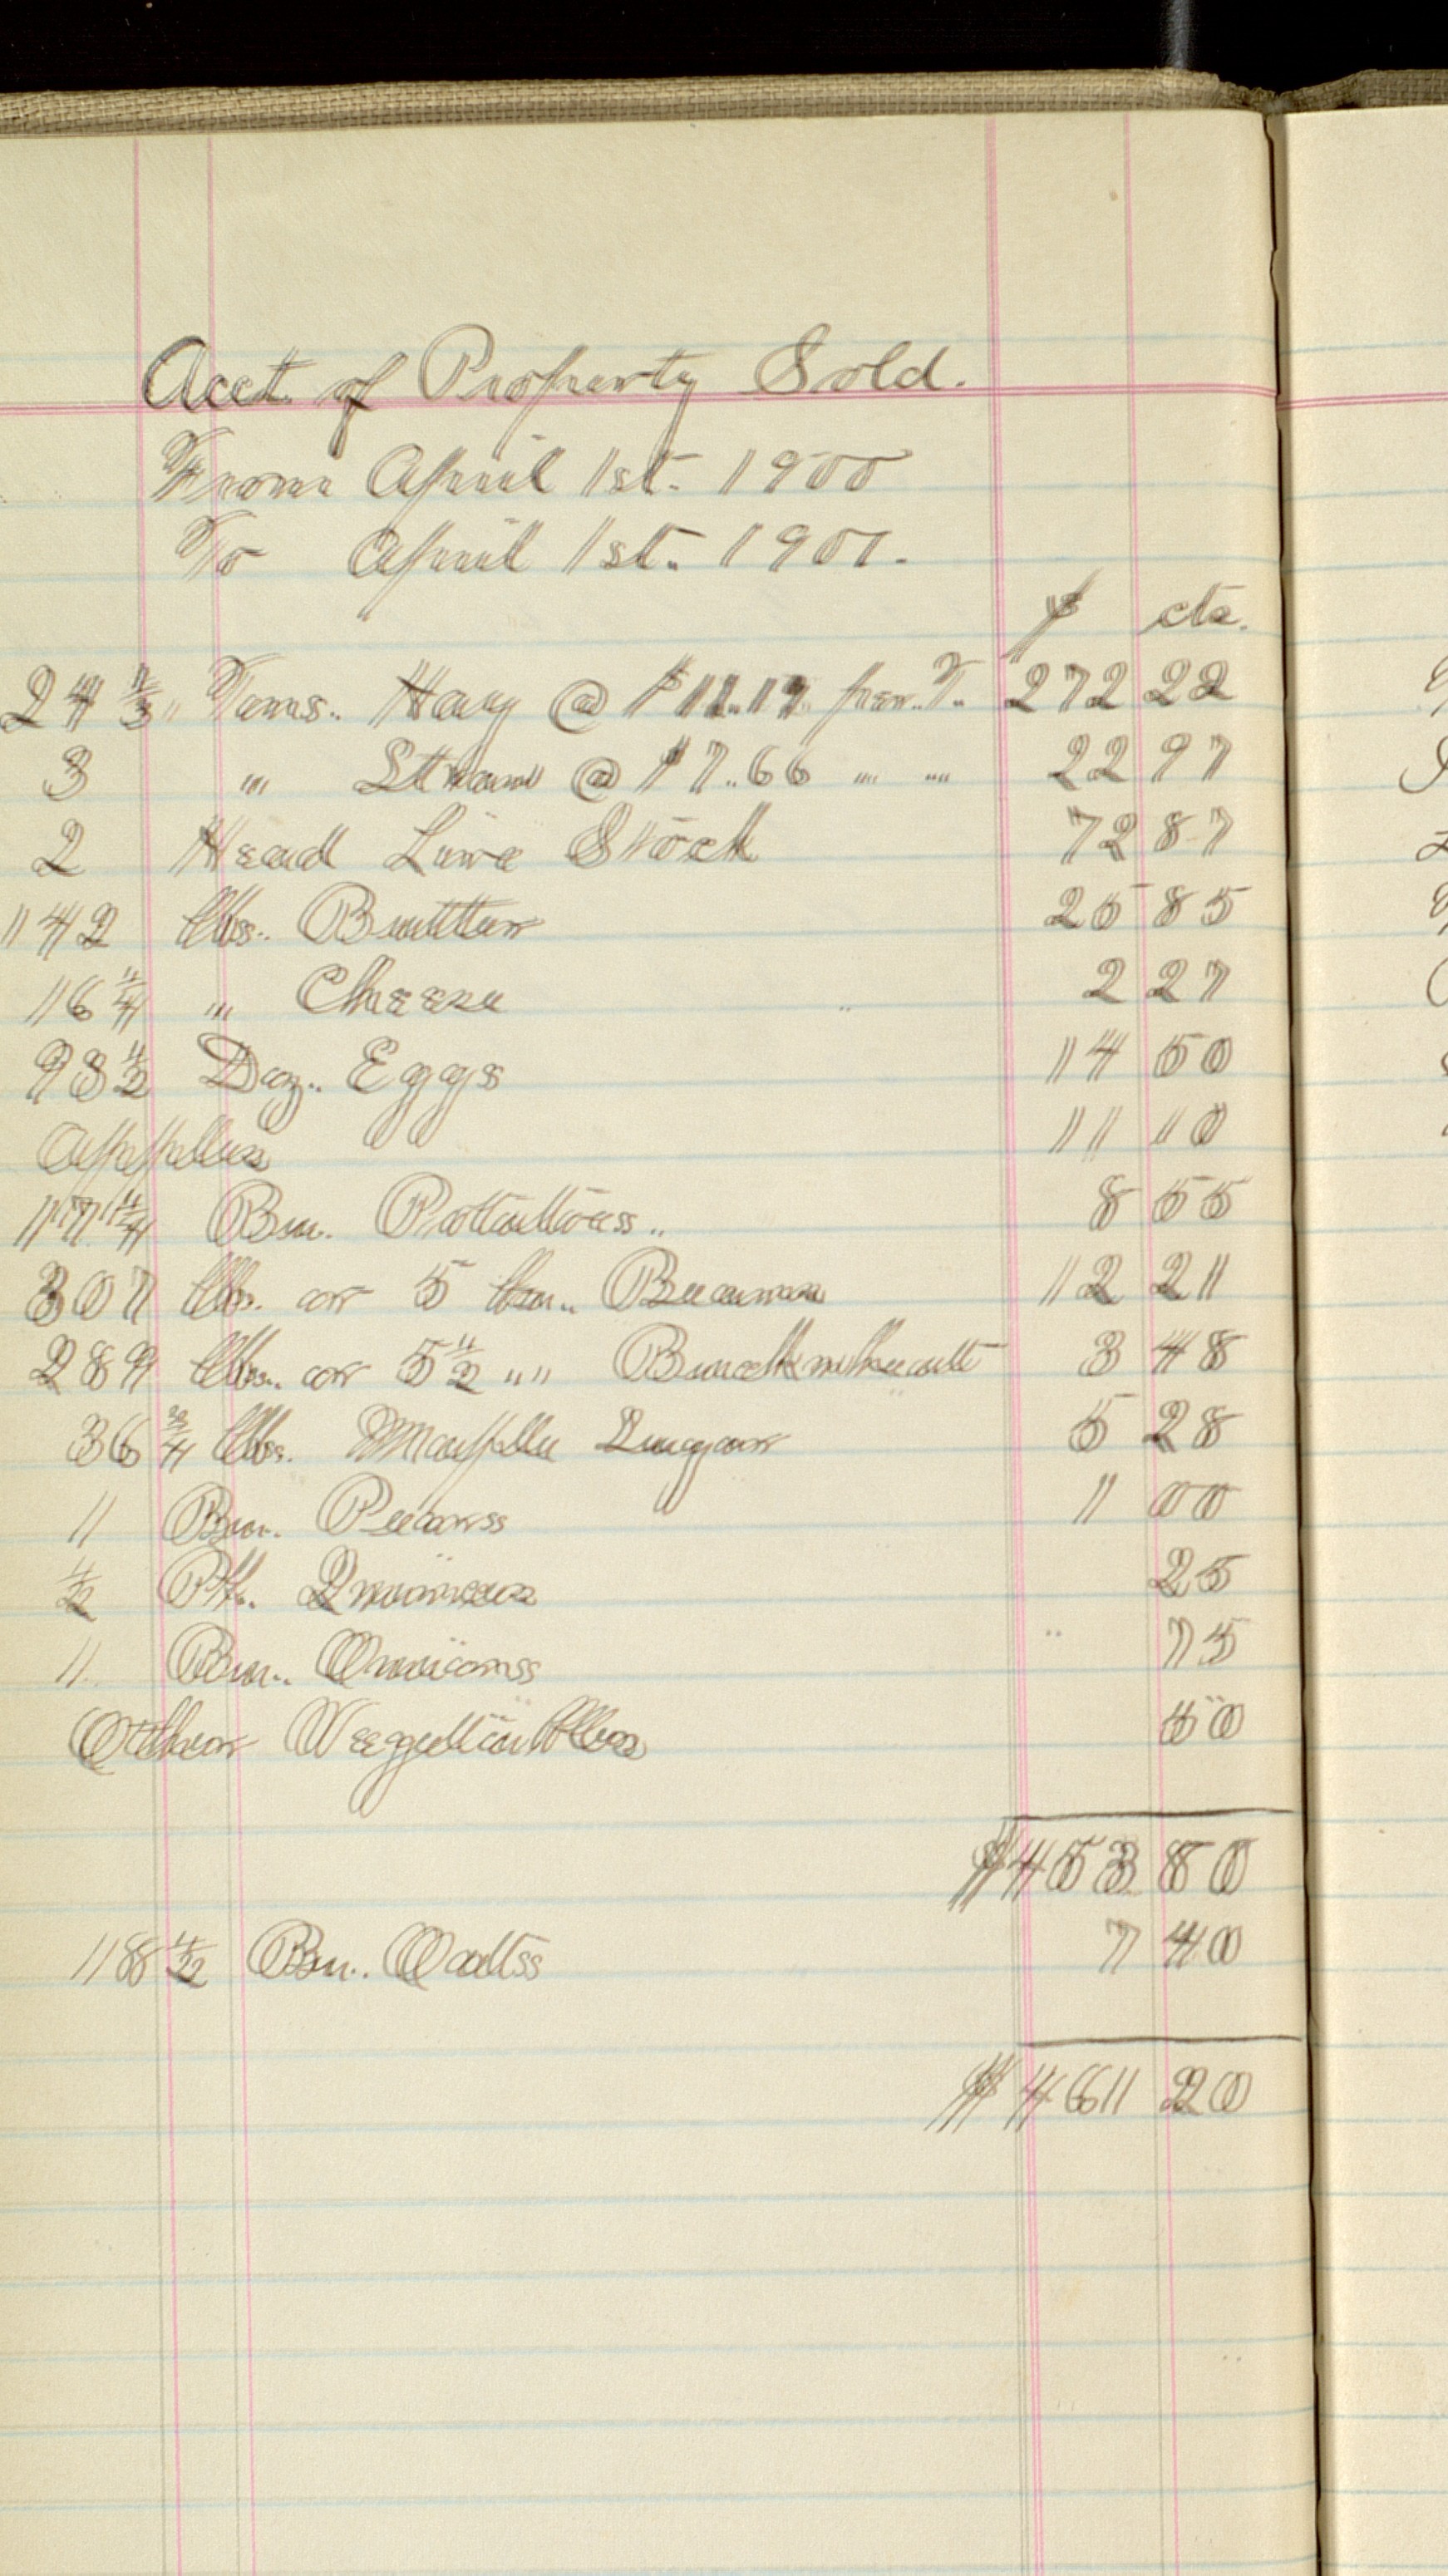 Acct. of Property Sold.
From April 1st. 1900
To April 1st. 1901.
$ cts.
24 1/3 Tons. Hay @ $11.19 per. T. 272 22
3 " Straw @ $7.66 " " 22 97
2 Head Live Stock 72 87
142 lbs. Butter 25 85
16 1/4 " Cheese 2 27
93 1/2 Doz. Eggs 14 50
Apples 11 10
17 1/4 Bu. Potatoes. 8 55
307 lbs. or 5 bu. Beans 12 21
289 lbs. or 5 1/2 " Buckwheat 3 48
36 3/4 lbs. Maple Sugar 5 28
1 Bu. Pears 1 00
1/2 Pk. Quinces 25
1 Bu. Onions 75
Other Vegetables 50
$453 80
18 1/2 Bu. Oats 7 40
$461 20